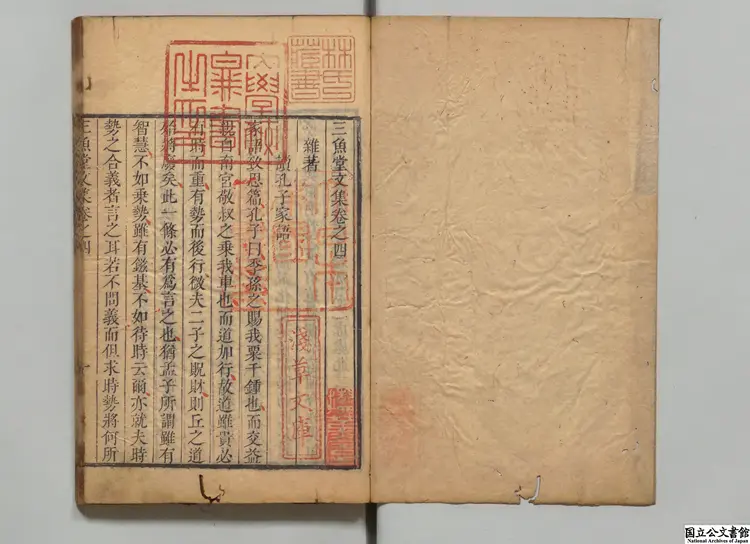 三魚堂文集卷之四
雜著
讀孔子家語
家語致思篇孔子曰季孫之賜我粟千鍾也而交益
親自南宮敬叔之乘我車也而道加行故道雖貴必
有時而重有勢而後行微夫二子之貺財則丘之道
殆將廢矣此一條必有爲言之也猶孟子所謂雖有
智慧不如乘勢雖有鎡基不如待時云爾亦就夫時
勢之合義者言之耳若不問義而但求時勢將何所
三魚堂文集卷之四
林氏藏書
淺草文庫
国立公文書館
National Archives of Japan